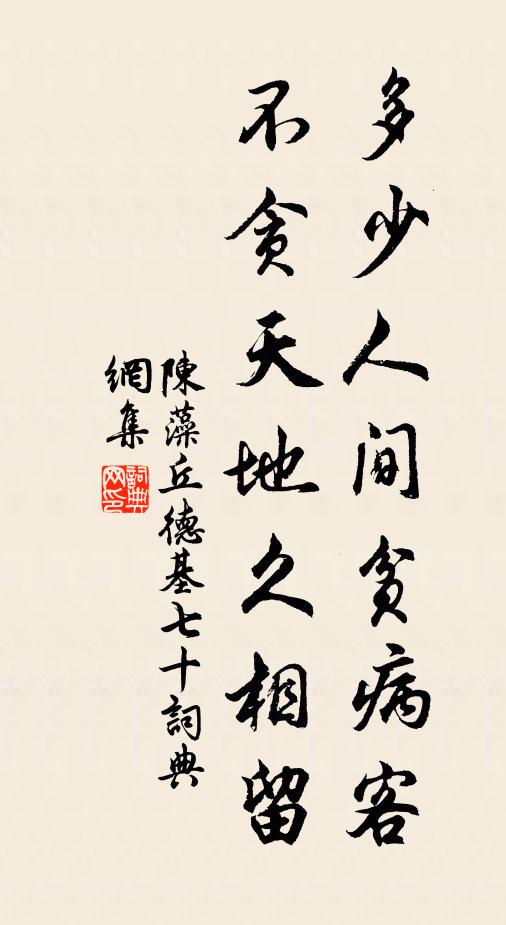 多少人间貧病客
不貪天地久相留
陳藻丘德基七十詞典
網集
詞典
网印